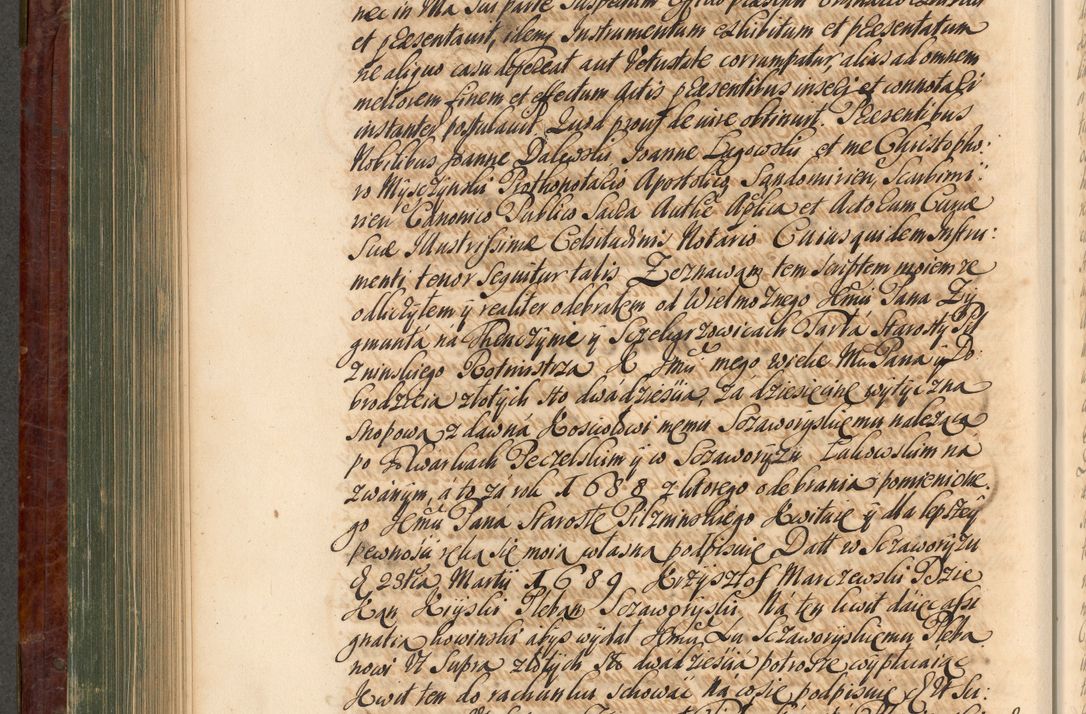 nec in
et præsentavit, idem Instrumentum exhibitum et præsentatum
ne aliquo casu depereat aut Vetustate corrumpatur, alias ad omnem
meliorem finem et effectum Actis præsentibus inseri et connotari
instanter postulavit. Quod prout de iure obtinuit. Præsentibus
Nobilibus Joanne Dalewski Joanne Łagowski et me Christopho:
ro Myszyński Prothonotario Apostolico Sandomirien, Scarbimi:
rien Canonico Publico Sacra Authe Aplica et Actorum Curiæ
Suæ Illustrissimæ Celsitudinis Notario Cuius quidem Instru:
menti tenor sequitur talis Zeznawam tem scriptem moiem że
odliczyłem y realiter odebrałem od Wielmożnego Jmći Pana Zy
gmunta na Thenczynie y Sczeligrzowicach Tarła Starosty Pil
znińskiego Rotmistrza K Jmći mego wielce Mu Pana y Do:
brodzieia złotych sto dwadzieścia, za dziesięcine wytyczna
snopowa z dawna Kościołowi memu Sczaworyskiemu należąca
po Folwarkach Peczelskim y w Sczaworyżu Łakowskim na
zwanym, a to za rok 1688 z ktorego odebrania pomienione
go Jmći Pana Staroste Pilznińskiego Kwituie y dla lepszey
pewności ręką się moią własną podpisuię Datt w Sczaworyżu
D 28tia Martij 1689 Krzysztof Marczewski Dzie
kan Kiyski Pleban Sczaworyski Na ten kwit daię assi
gnatią howinski abyś wydał Jmći Xa Sczaworyskiemu Pleba
nowi Ut Supra złotych sto dwadzieścia potroszę wypłacaiąc
Kwit ten do rachunku schować Na co się podpisuię D Ut Su: